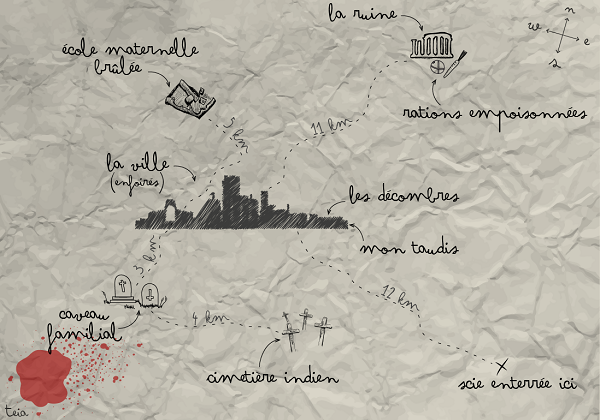 la ruine
n
w
e
s
école maternelle
brûlée
rations empoisonnées
5 km
11 km
la ville
(enfoirés)
les décombres
mon taudis
3 km
12 km
caveau
familial
4 km
cimetière indien
scie enterrée ici
teia